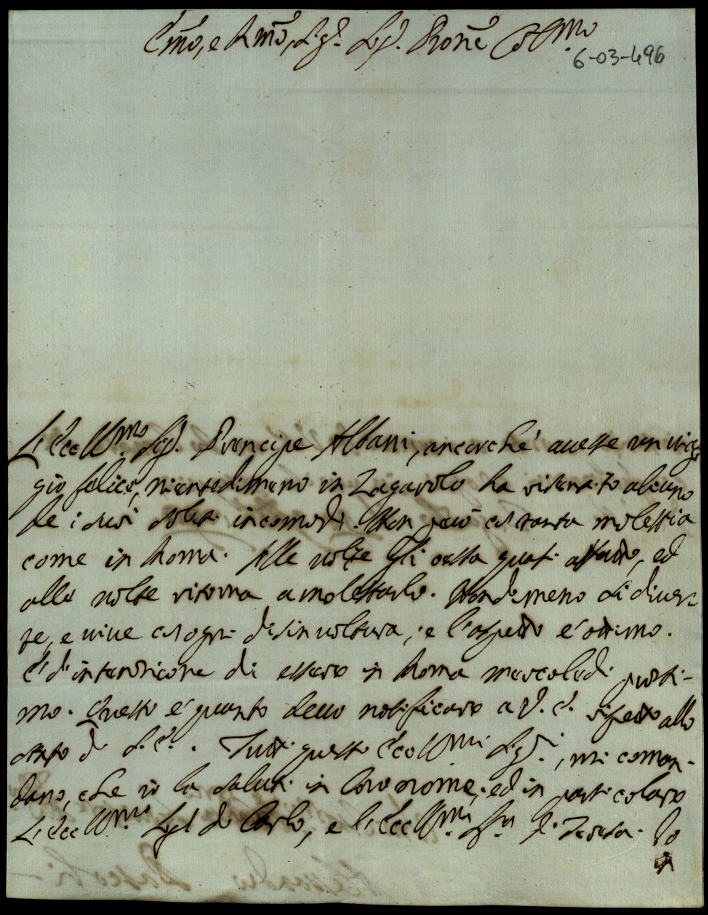 Em̃o, e Rm̃o, Sig.r Sig.r Pron̄e Col.mo
6-03-496
L'Ecc.mo Sig.r Principe Albani, ancorché avesse un viag-
gio felice, nientedimeno in Zagarolo ha risentito alcuno
de i suoi soliti incomodi. Non però con tanta molestia
come in Roma. Alle volte gli cessa quasi affatto, ed
alle volte ritorna a molestarlo. Nondimeno si diver-
te, e vive con ogni disinvoltura, e l'aspetto è ottimo.
È d'intenzione di essere in Roma mercoledì prossi-
mo. Questo è quanto devo notificare a V. E. rispetto allo
stato di S. E. Tutti questi Ecc.mi Sig.ri, mi coman-
dano, che io la saluti in loro nome, ed in particolare
L'Ecc.mo Sig.r D. Carlo, e l'Ecc.ma Sig.ra D. Teresa. Io